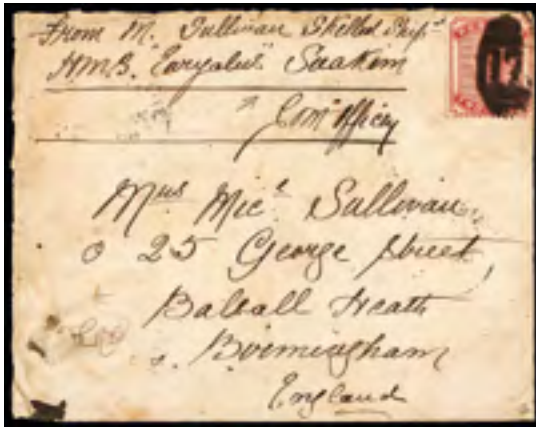 From M. Sullivan Skilled Shipt
HMS. "Euryalus" Suakim
Comr Officer
Mrs Micl Sullivan
25 George Street,
Balsall Heath
Birmingham
England